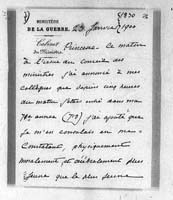 5870
MINISTÈRE
DE LA GUERRE.
Cabinet
du Ministre
23 Janvier 1900
Princesse. Ce matin
à l'issue du conseil des
ministres j'ai annoncé à mes
collègues que depuis cinq heures
du matin j'étais entré dans ma
70e année (70) j'ai ajouté que
je m'en consolais en me
constatant, physiquement
moralement et cérébralement plus
jeune que le plus jeune